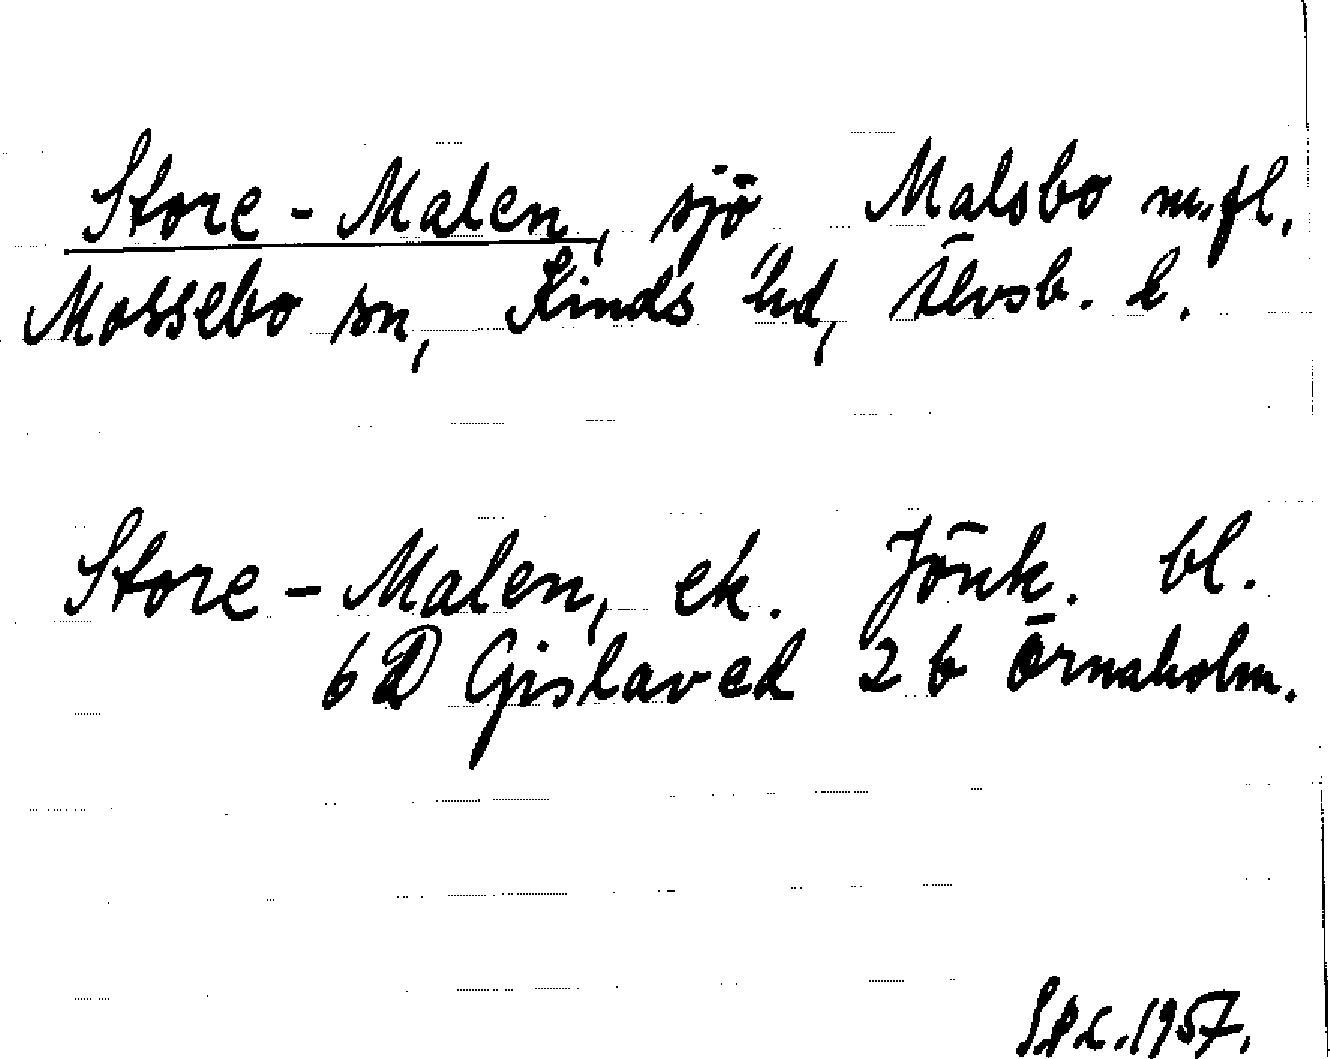 Store-Malen, sjö Malsbo m.fl.
Mossebo sn, Kinds hd, Älvsb. l.
Store-Malen, ek. Jönk. bl.
6D Gislaved 2 b Örnaholm.
1957.